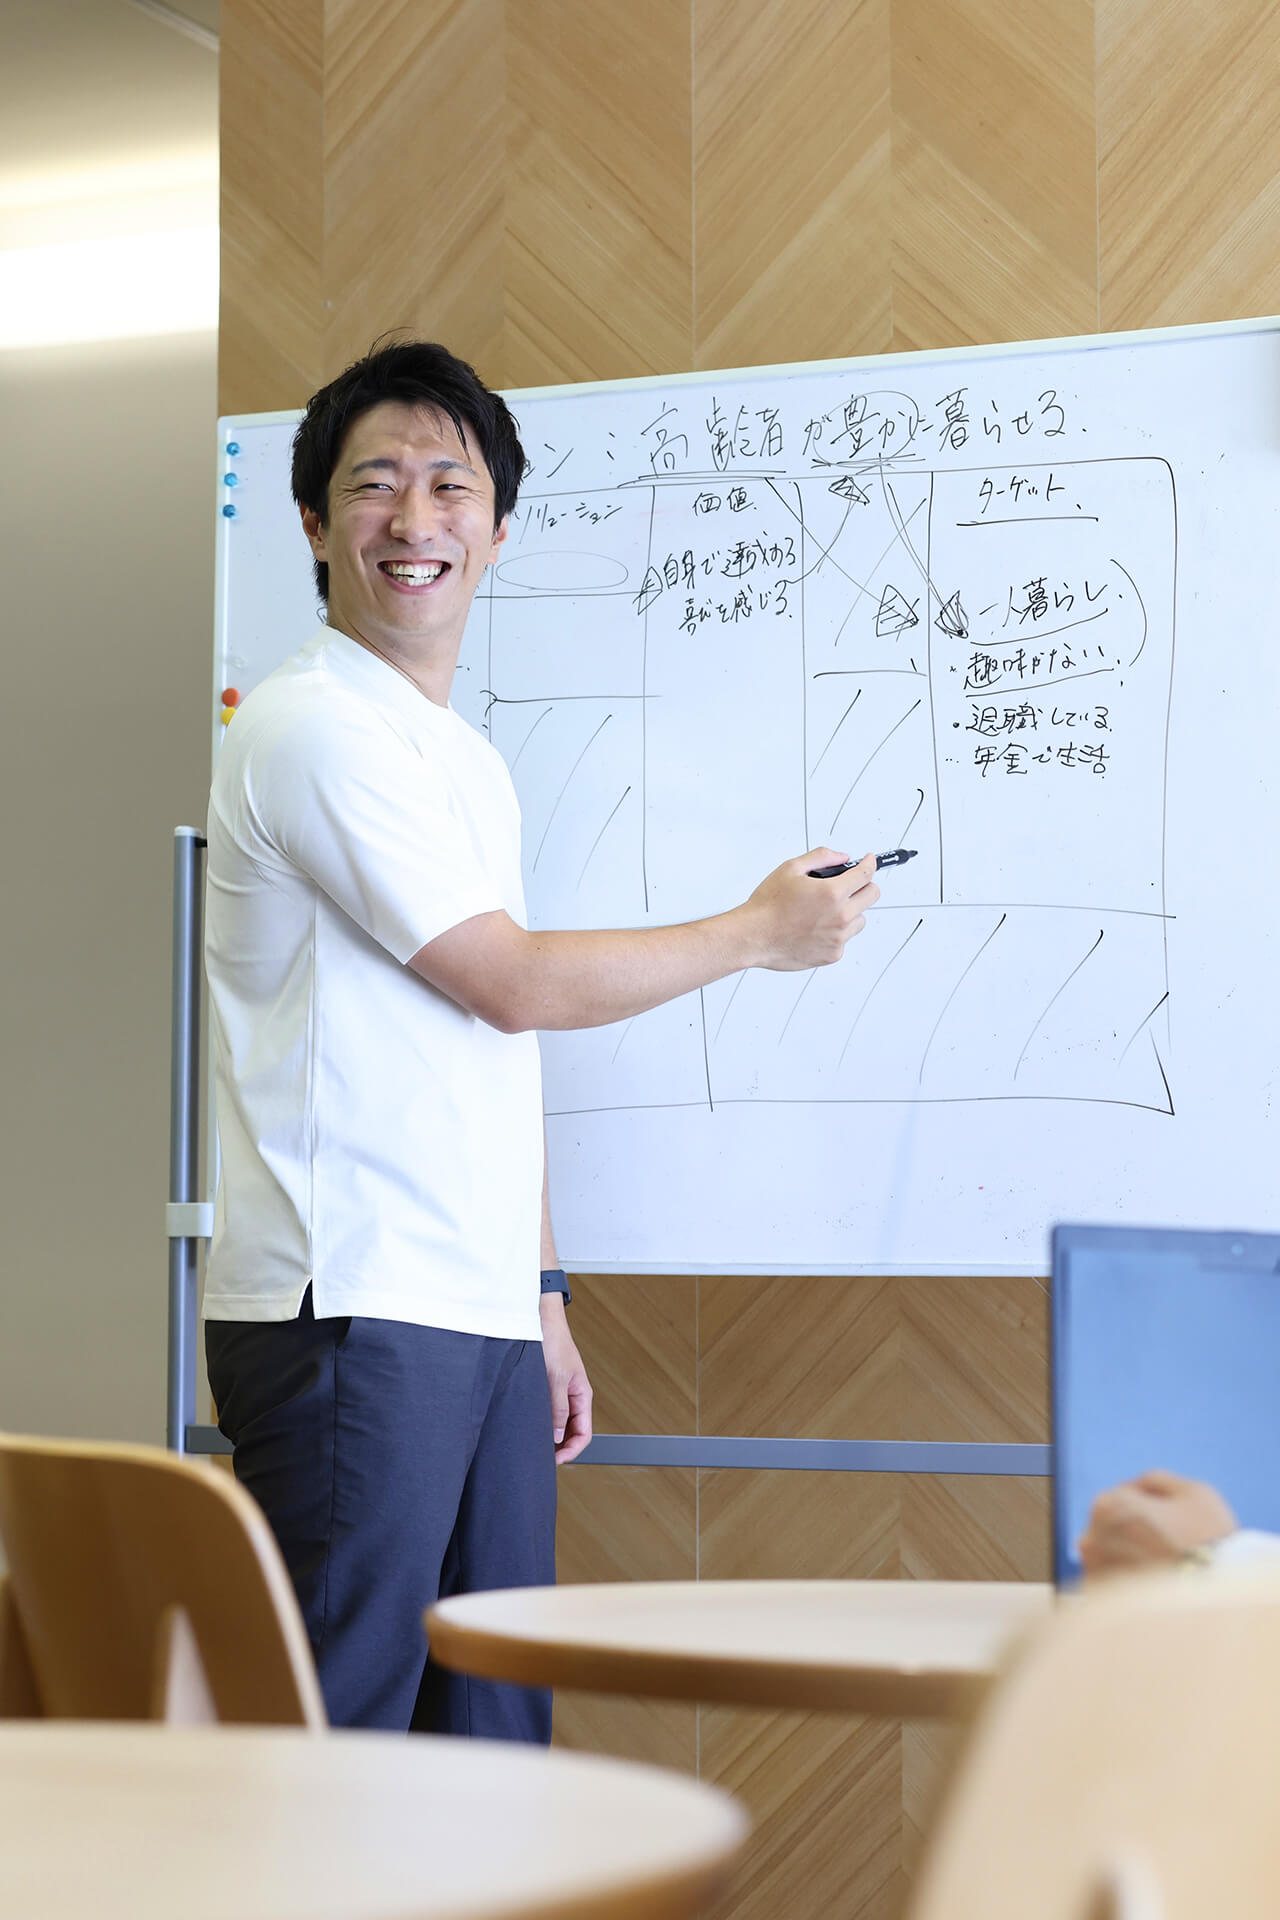 ョン：高齢者が豊かに暮らせる
ソリューション
価値
ターゲット
自身で達成する
喜びを感じる
一人暮らし
・趣味がない
・退職している
・年金で生活